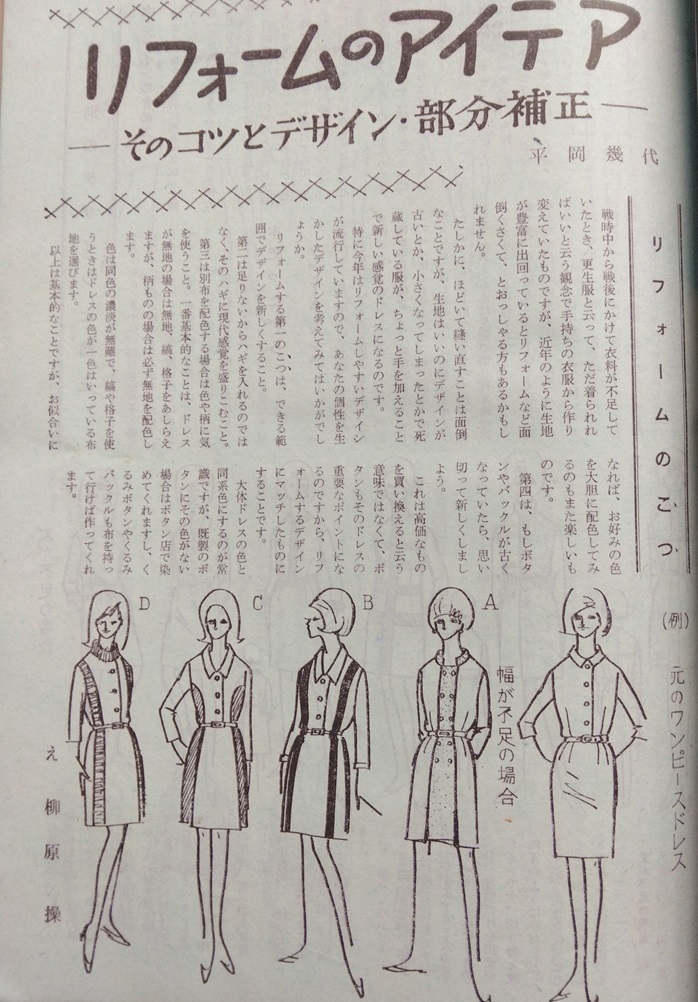 リフォームのアイデア
―そのコツとデザイン・部分補正―
平岡幾代
リフォームのこつ
戦時中から戦後にかけて衣料が不足して
いたとき、更生服と云って、ただ着られれ
ばいいと云う観念で手持ちの衣服から作り
変えていたものですが、近年のように生地
が豊富に出回っているとリフォームなど面
倒くさくて、とおっしゃる方もあるかもし
れません。
たしかに、ほどいて縫い直すことは面倒
なことですが、生地はいいのにデザインが
古いとか、小さくなってしまったとかで死
蔵している服が、ちょっと手を加えること
で新しい感覚のドレスになるのです。
特に今年はリフォームしやすいデザイン
が流行していますので、あなたの個性を生
かしたデザインを考えてみてはいかがでし
ょうか。
リフォームする第一のこつは、できる範
囲でデザインを新しくすること。
第二は足りないからハギを入れるのでは
なく、そのハギに現代感覚を盛りこむこと。
第三は別布を配色する場合は色や柄に気
を使うこと。一番基本的なことは、ドレス
が無地の場合は無地、縞、格子をあしらえ
ますが、柄ものの場合は必ず無地を配色し
ます。
色は同色の濃淡が無難で、縞や格子を使
うときはドレスの色が一色はいっている布
地を選びます。
以上は基本的なことですが、お似合いに
なれば、お好みの色
を大胆に配色してみ
るのもまた楽しいも
のです。
第四は、もしボタ
ンやバックルが古く
なっていたら、思い
切って新しくしまし
ょう。
これは高価なもの
を買い換えると云う
意味ではなくて、ボ
タンもそのドレスの
重要なポイントにな
るのですから、リフ
ォームするデザイン
にマッチしたものに
することです。
大体ドレスの色と
同系色にするのが常
識ですが、既製のボ
タンにその色がない
場合はボタン店で染
めてくれますし、く
るみボタンやくるみ
バックルも布を持っ
て行けば作ってくれ
ます。
(例) 元のワンピースドレス
幅が不足の場合
A
B
C
D
え 柳原 操